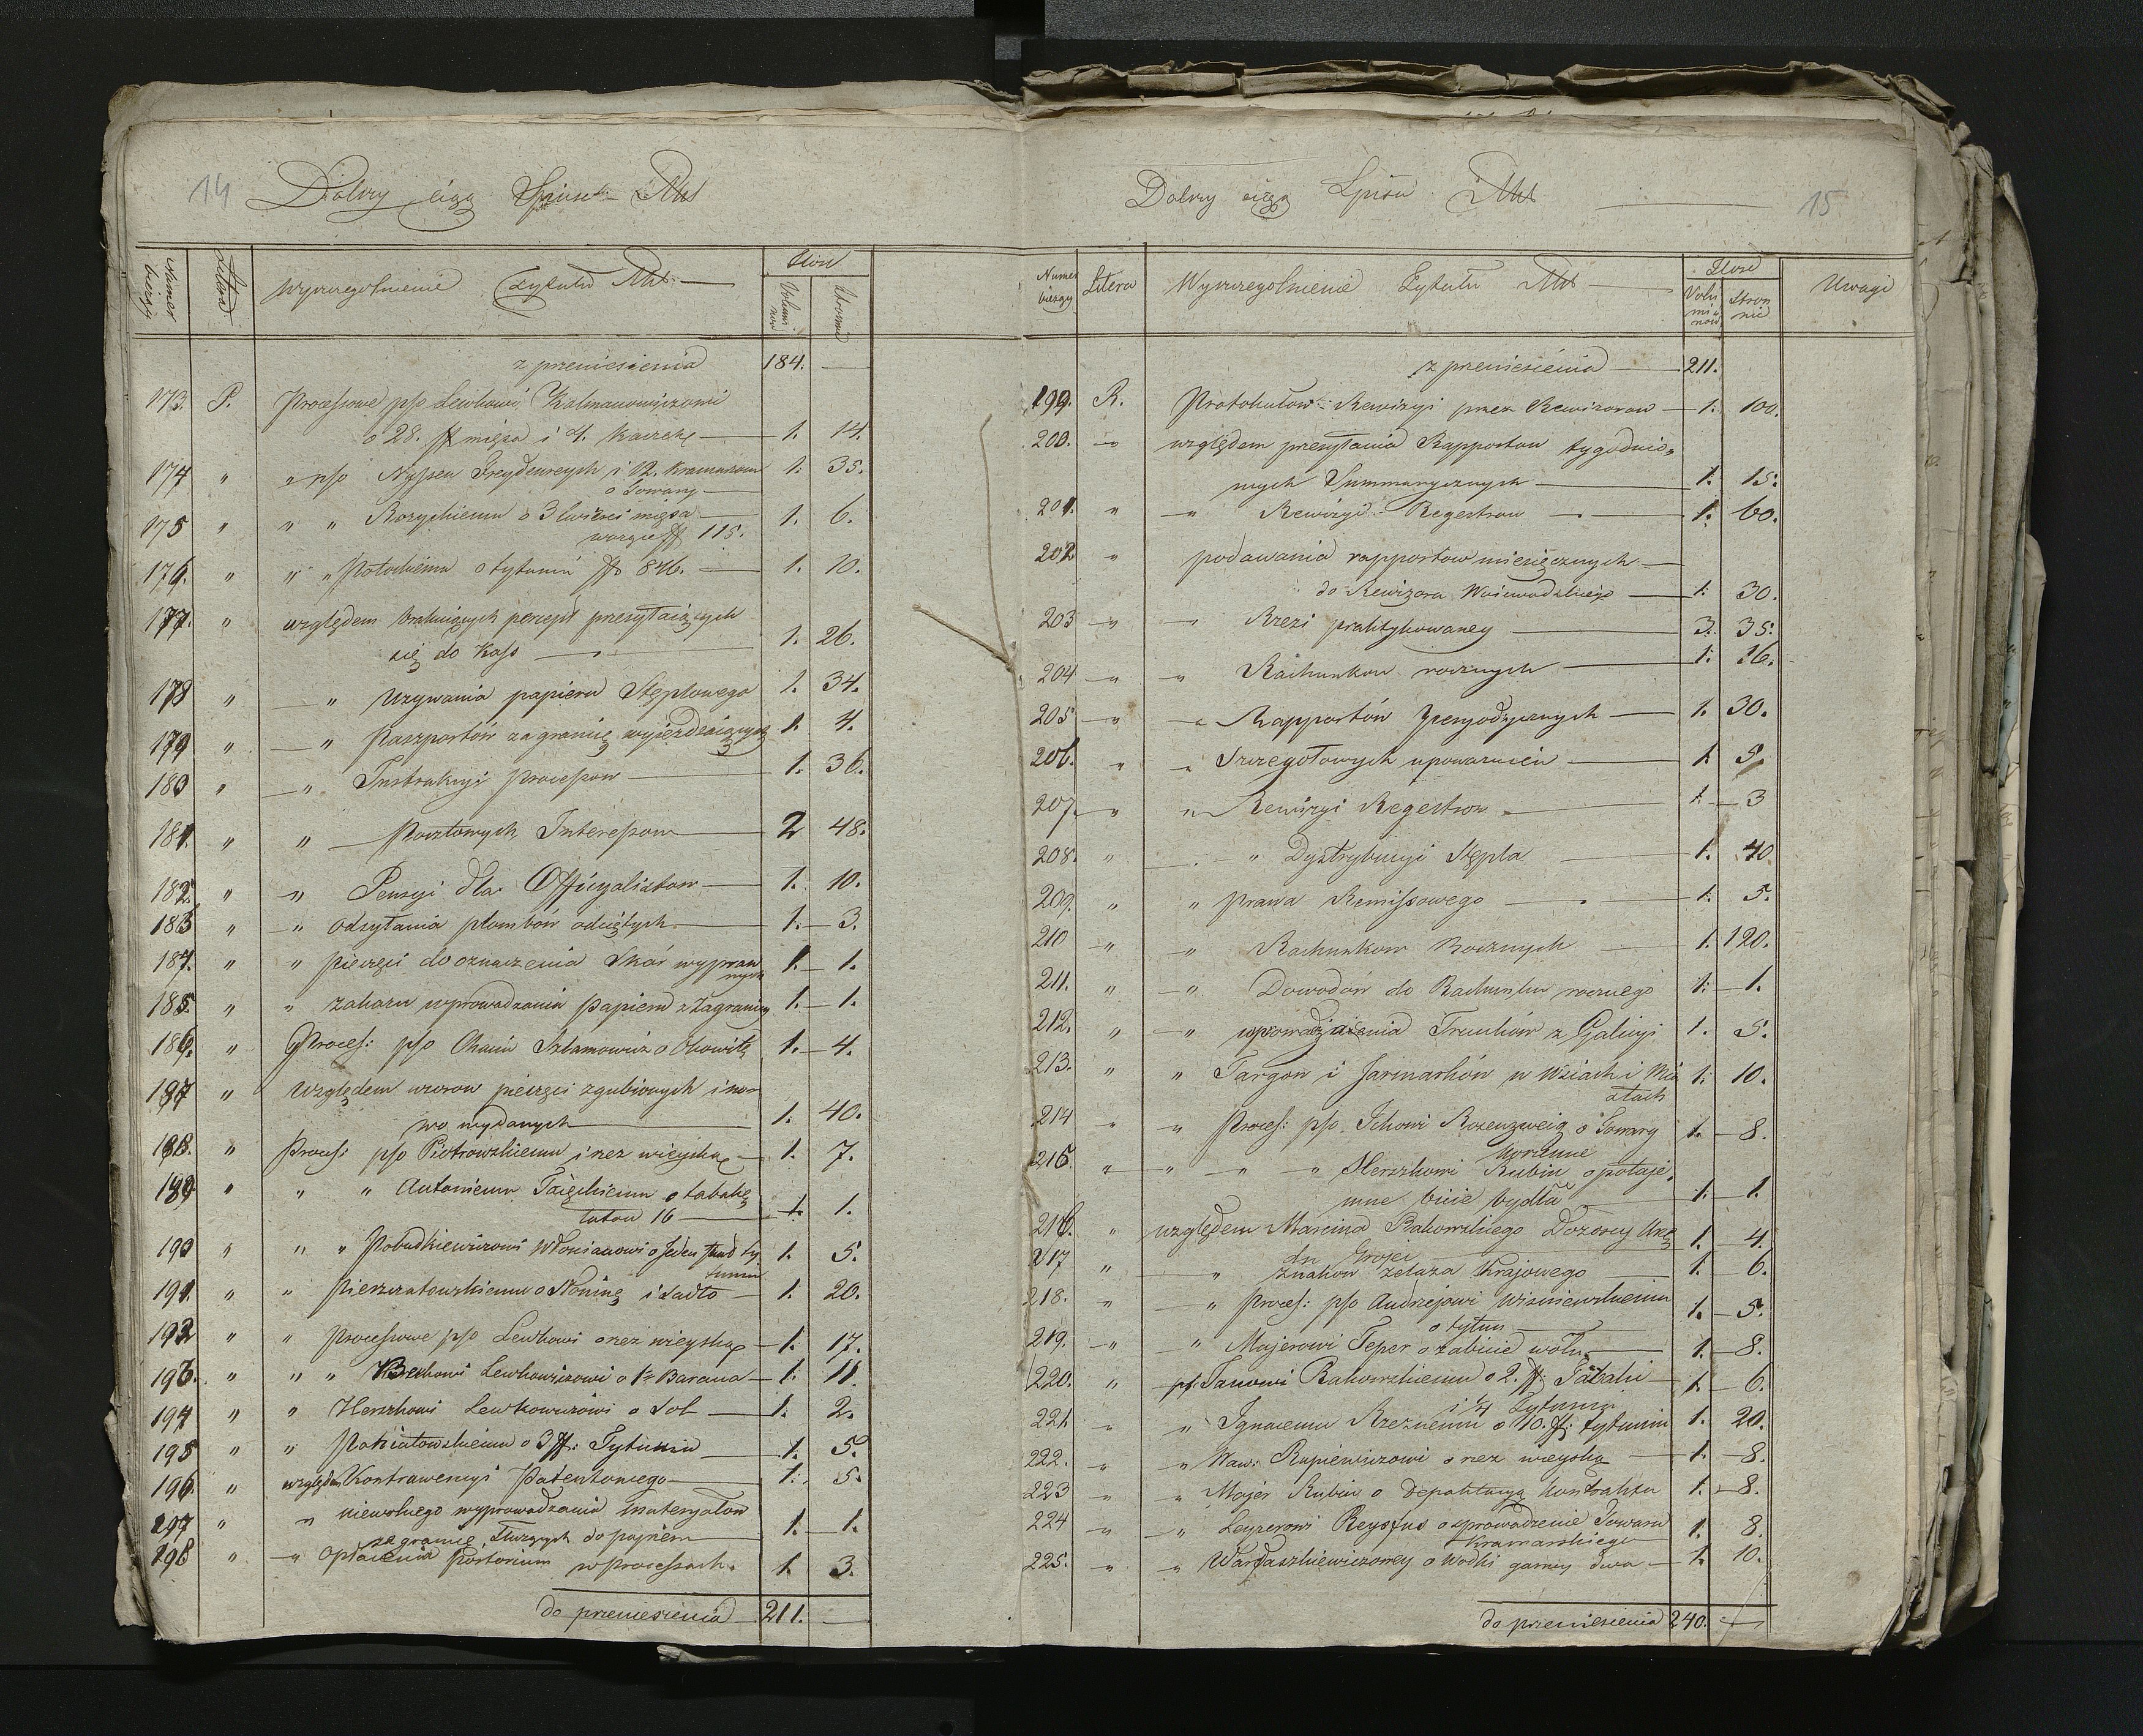 14
Dalszy ciąg Spisu Akt
Numer bieżący
Litera
Wyszczególnienie Tytułu Akt
Ilość
Voluminow
Stronnic
z przeniesienia 184. —
173. P. Processowe p/o Lewkowi Kalmanowiczowi
o 28. ff mięsa i 4. Kaczki — 1. 14.
174 " " p/o Nyssen Freydenreych i 12. Kramarzom 1. 35.
o Towary —
175 " " " Rozyckiemu o 3 ćwierci mięsa 1. 6.
wagi ff 115.
176. " " " Potockiemu o tytuniu ff 846. — 1. 10.
177. " względem brakujących percept przesyłaiących
się do Kass — 1. 26.
178 " — " Używania papieru Stęplowego 1. 34.
179 " — " Paszportów zagranicę wyieżdżaiących 1. 4.
180 " — " Instrukcyi processow — 1. 36.
181. " " — Pocztowych Interessow — 2 48.
182. " — " Pensyi dla Officyalistow — 1. 10.
183 " — " odsyłania plombów odciętych — 1. — 3.
184. " " pieczęci do oznaczenia Skór wypraw 1. — 1.
nych
185. " " zakazu wprowadzania papieru z Zagranicy 1. — 1.
186. " " Process: p/o Chaiu Szlamowicz o Okowitę 1. — 4.
187 " Względem wzorow pieczęci zgubionych i no-
wo wydanych — 1. 40.
188. " Process: p/o Piotrowskiemu i rez wieyską — 1. 7.
189 " " " Antoniemu Zaięckiemu o tabakę
łutow 16 — 1. 1.
190 " " " Pobudkiewiczowi Włoscianowi o Jeden funt ty 1. 5.
tuniu
191. " " Pierzchatowskiemu o Słoninę i sadło — 1. 20.
192 " " Processowe p/o Lewkowi o rez wieyską — 1. 17.
193. " " " Berkowi Lewkowiczowi o 1. Barana — 1. 11.
194 " " Herszkowi Lewkowiczowi o sol — 1. 2.
195 " " Poniatowskiemu o 3 ff: Tytuniu — 1. 5.
196. " względem Kontrawencyi Patentowego — 1. 5.
197 " " niewolnego wyprowadzania materyałow
za granicę służących do papieru — 1. — 1.
198 " — " Opłacenia Portorium w processach. 1. 3.
do przeniesienia 211. —
Dalszy ciąg Spisu Akt — 15
Numer bieżący
Litera
Wyszczególnienie Tytułu Akt
Ilość
Voluminow
Stronnic
Uwagi
z przeniesienia — 211.
199. R. Protokułow Rewizyi przez Rewizorow — 1. 100.
200. — " względem przesyłania Rapportow tygodnio-
wych Summarycznych — 1. 15.
201. " — " Rewizyi Regestrow — 1. 60.
202 " podawania rapportow miesięcznych —
do Rewizora Woiewodzkiego — 1. 30.
203 — " — " Rzezi praktykowaney — 3. 35.
204 — " — " Rachunkow rocznych — 1. 36.
205 — " — " Rapportów peryodycznych — 1. 30.
206. " " Szczegołowych upoważnień — 1 5.
207. — " " Rewizyi Regestrow — 1. — 3
208. " — " Dystrybucyi Stępla — 1. 40
209. " " prawa Remissowego — 1. 5.
210 — " — " Rachunkow Rocznych — 1. 120.
211. " — " Dowodów do Rachunku rocznego 1. — 1.
212. " — " wprowadzenia Trunków z Galicyi 1. 5.
213. " " Targow i Jarmarków w Wsiach i Mia 1. 10.
stach
214 " " Process: p/o Ickowi Rozenzweig o Towary 1. — 8.
215. " — " — " — " Herszkowi Rubin o potaje-
mne bicie bydła 1. — 1.
216. " względem Marcina Bakowskiego Dozorcy Urzę 1. — 4.
du Grojec
217 " — " znakow żelaza Krajowego — 1. — 6.
218. " — " Process: p/o Andrzejowi Wisniewskiemu 1. — 5.
o tytun —
219. " " Majerowi Teper o zabicie wołu — 1. — 8.
220. " p/o Janowi Rakowskiemu o 2. ff: Tabaki 1. — 6.
i 1/4 Tytuniu
221. " " Ignacemu Rzeznemu o 10. ff: tytuniu 1. 20.
222. " " Waw: Rupiewiczowi o rez wieyską — 1. — 8.
223 " " Majer Rubin o Depaktacyą Kontraktu 1. — 8.
224 " — " Leyzerowi Reysfus o sprowadzenie Towaru 1. 8.
Kramarskiego
225. " " Wardaszkiewiczowey o Wodki garncy dwa — 1. 10.
do przeniesienia 240. —